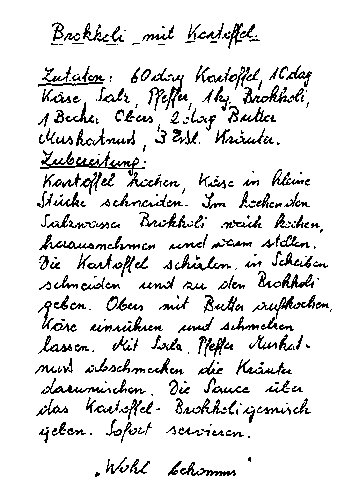 Brokkoli mit Kartoffel.
Zutaten: 60 dag Kartoffel, 10 dag
Käse, Salz, Pfeffer, 1 kg Brokkoli,
1 Becher Obers, 2 dag Butter
Muskatnuss, 3 Essl. Kräuter.
Zubereitung:
Kartoffel kochen, Käse in kleine
Stücke schneiden. Im kochenden
Salzwasser Brokkoli weich kochen,
herausnehmen und warm stellen.
Die Kartoffel schälen, in Scheiben
schneiden und zu den Brokkoli
geben. Obers mit Butter aufkochen,
Käse einrühren und schmelzen
lassen. Mit Salz, Pfeffer Muskat-
nuss abschmecken die Kräuter
daruntermischen. Die Sauce über
das Kartoffel-Brokkoligemisch
geben. Sofort servieren.
„Wohl bekomms"